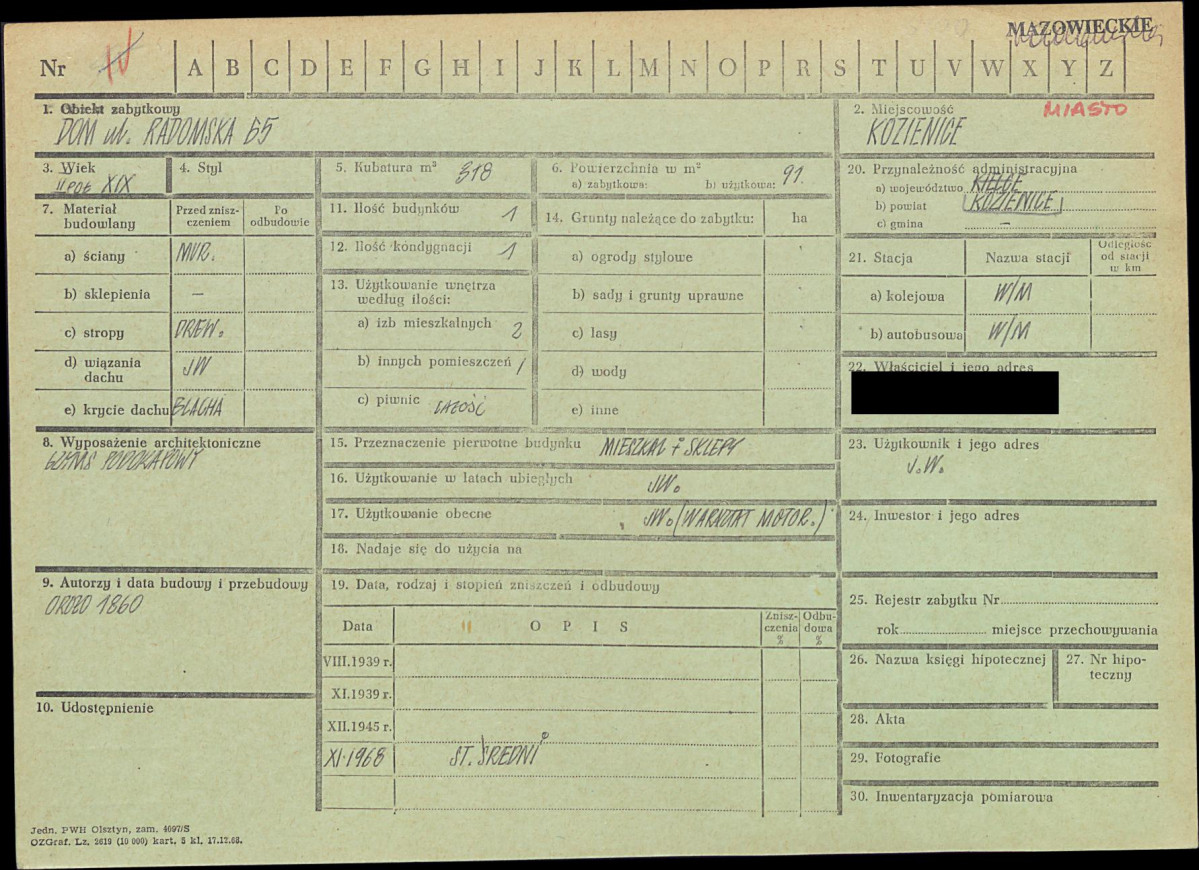 MAZOWIECKIE
Nr IV A B C D E F G H I J K L M N O P R S T U V W X Y Z
1. Obiekt zabytkowy
DOM ul. RADOMSKA 65
2. Miejscowość MIASTO
KOZIENICE
3. Wiek
II POŁ XIX
4. Styl
5. Kubatura m³ 318
6. Powierzchnia w m²
a) zabytkowa: b) użytkowa: 91.
7. Materiał budowlany
Przed zniszczeniem
Po odbudowie
a) ściany MUR.
b) sklepienia —
c) stropy DREW.
d) wiązania dachu JW
e) krycie dachu BLACHA
11. Ilość budynków 1
12. Ilość kondygnacji 1
13. Użytkowanie wnętrza
według ilości:
a) izb mieszkalnych 2
b) innych pomieszczeń /
c) piwnic CAŁOŚĆ
14. Grunty należące do zabytku: ha
a) ogrody stylowe
b) sady i grunty uprawne
c) lasy
d) wody
e) inne
20. Przynależność administracyjna
a) województwo KIELCE
b) powiat KOZIENICE
c) gmina —
21. Stacja Nazwa stacji Odległość od stacji w km
a) kolejowa W/M
b) autobusowa W/M
22. Właściciel i jego adres
8. Wyposażenie architektoniczne
GZYMS PODOKAPOWY
15. Przeznaczenie pierwotne budynku MIESZKAL + SKLEPY
16. Użytkowanie w latach ubiegłych JW.
17. Użytkowanie obecne JW. (WARSZTAT MOTOR.)
18. Nadaje się do użycia na
23. Użytkownik i jego adres
J.W.
24. Inwestor i jego adres
9. Autorzy i data budowy i przebudowy
OKOŁO 1860
19. Data, rodzaj i stopień zniszczeń i odbudowy
Data OPIS Zniszczenia % Odbudowa %
VIII.1939 r.
XI.1939 r.
XII.1945 r.
XI.1968 ST. ŚREDNI
10. Udostępnienie
25. Rejestr zabytku Nr
rok miejsce przechowywania
26. Nazwa księgi hipotecznej
27. Nr hipoteczny
28. Akta
29. Fotografie
30. Inwentaryzacja pomiarowa
Jedn. PWH Olsztyn, zam. 4097/S
OZGraf. Lz. 2619 (10 000) kart. 5 kl. 17.12.68.